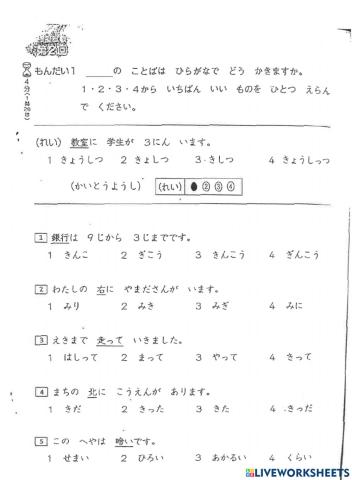 第2回
4分(1問20秒)
もんだい1 ＿＿＿の ことばは ひらがなで どう かきますか。
1・2・3・4から いちばん いい ものを ひとつ えらん
で ください。
(れい) 教室に 学生が 3にん います。
1 きょうしつ 2 きょしつ 3 きしつ 4 きょうしっつ
(かいとうようし) (れい) ● ② ③ ④
1 銀行は 9じから 3じまでです。
1 きんこ 2 ぎこう 3 きんこう 4 ぎんこう
2 わたしの 右に やまださんが います。
1 みり 2 みき 3 みぎ 4 みに
3 えきまで 走って いきました。
1 はしって 2 まって 3 やって 4 さって
4 まちの 北に こうえんが あります。
1 きだ 2 きった 3 きた 4 きっだ
5 この へやは 暗いです。
1 せまい 2 ひろい 3 あかるい 4 くらい
LIVEWORKSHEETS